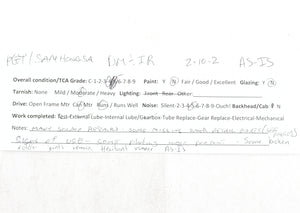 PGT/SAMHONGSA DM&IR 2-10-2 AS-IS
Overall condition/TCA Grade: C-1-2-3-4-5-6-7-8-9 Paint: Y N Fair / Good / Excellent Glazing: Y N
Tarnish: None Mild / Moderate / Heavy Lighting: Front Rear Other
Drive: Open Frame Mtr Can Mtr Runs / Runs Well Noise: Silent-2-3-4-5-6-7-8-9-Ouch! Backhead/Cab: Y N
Work completed: Test-External Lube-Internal Lube/Gearbox-Tube Replace-Gear Replace-Electrical-Mechanical
Notes: some missing
Signs of use - some plating wear present - some broken
AS-IS